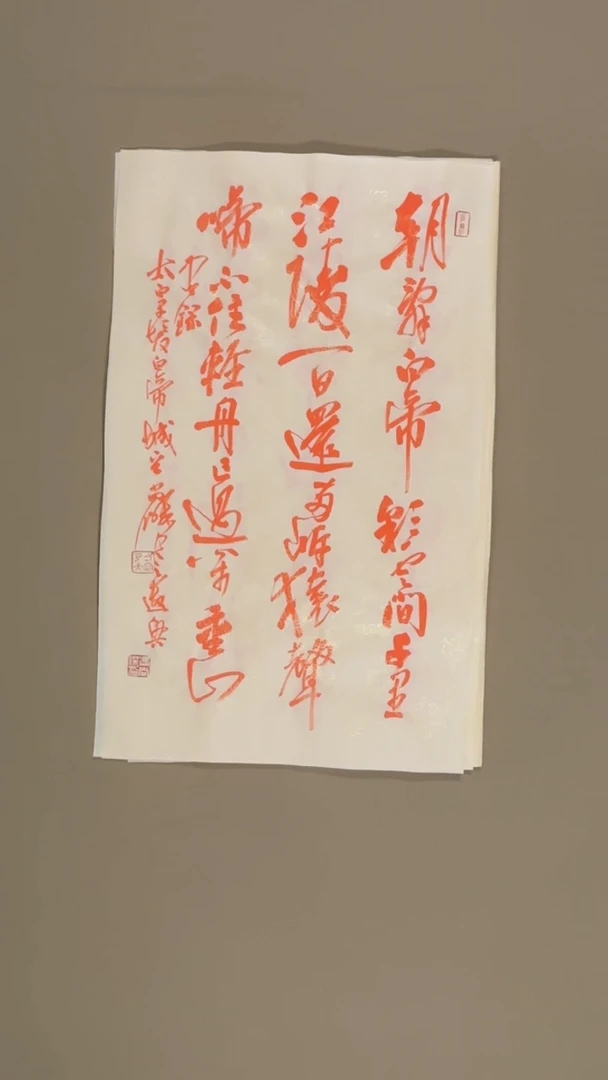 朝辭白帝彩雲間千里
江陵一日還兩岸猿聲
啼不住輕舟已過萬重山
發白帝城